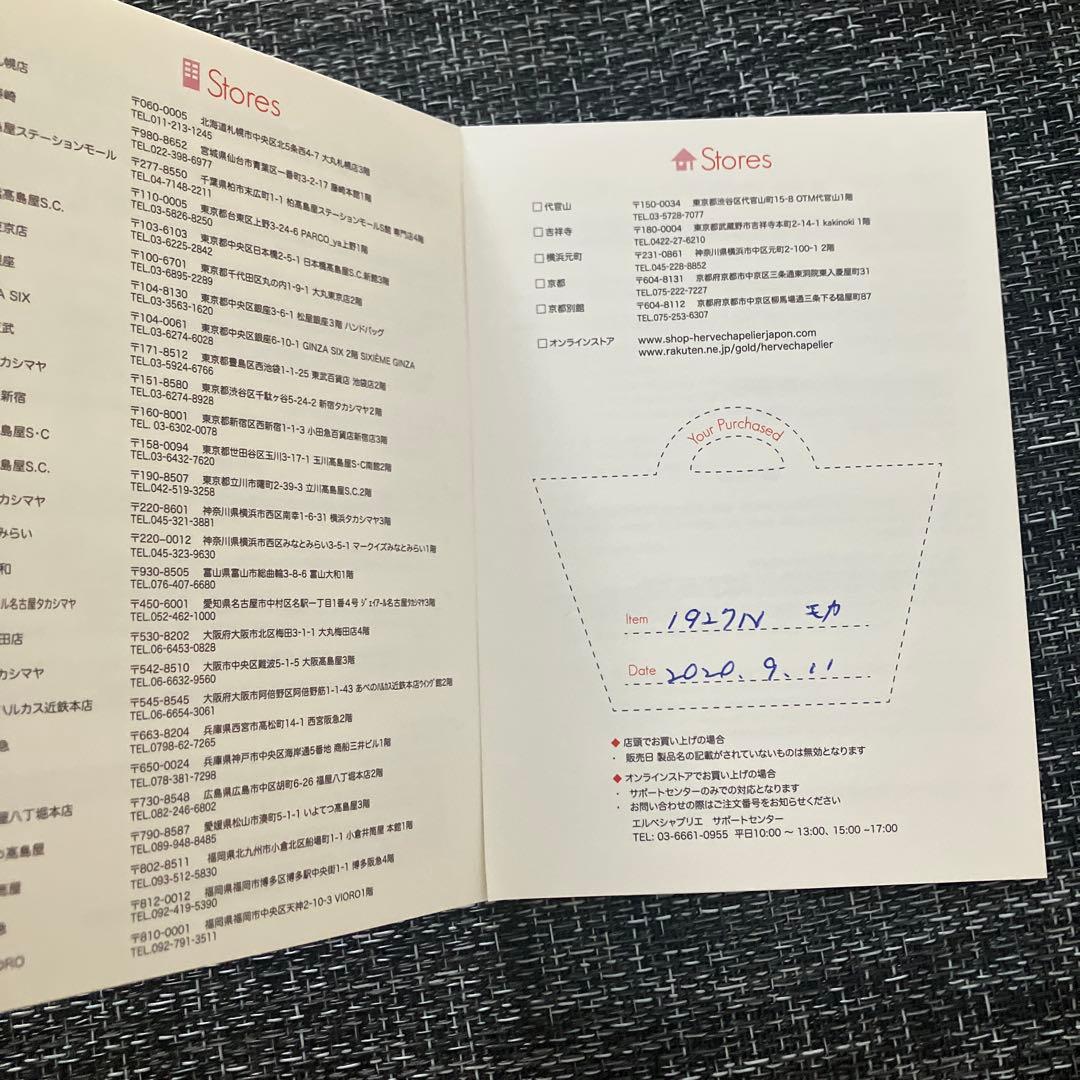 Stores
幌店
〒060-0005 北海道札幌市中央区北5条西4-7 大丸札幌店3階
TEL.011-213-1245
崎
〒980-8652 宮城県仙台市青葉区一番町3-2-17 藤崎本館1階
TEL.022-398-6977
屋ステーションモール
〒277-8550 千葉県柏市末広町1-1 柏高島屋ステーションモールS館 専門店4階
TEL.04-7148-2211
〒110-0005 東京都台東区上野3-24-6 PARCO_ya上野1階
TEL.03-5826-8250
高島屋S.C.
〒103-6103 東京都中央区日本橋2-5-1 日本橋高島屋S.C.新館3階
TEL.03-6225-2842
京店
〒100-6701 東京都千代田区丸の内1-9-1 大丸東京店2階
TEL.03-6895-2289
座
〒104-8130 東京都中央区銀座3-6-1 松屋銀座3階 ハンドバッグ
TEL.03-3563-1620
A SIX
〒104-0061 東京都中央区銀座6-10-1 GINZA SIX 2階 SIXIÈME GINZA
TEL.03-6274-6028
武
〒171-8512 東京都豊島区西池袋1-1-25 東武百貨店 池袋店2階
TEL.03-5924-6766
カシマヤ
〒151-8580 東京都渋谷区千駄ヶ谷5-24-2 新宿タカシマヤ2階
TEL.03-6274-8928
新宿
〒160-8001 東京都新宿区西新宿1-1-3 小田急百貨店新宿店3階
TEL. 03-6302-0078
島屋S・C
〒158-0094 東京都世田谷区玉川3-17-1 玉川高島屋S・C南館2階
TEL.03-6432-7620
島屋S.C.
〒190-8507 東京都立川市曙町2-39-3 立川高島屋S.C.2階
TEL.042-519-3258
カシマヤ
〒220-8601 神奈川県横浜市西区南幸1-6-31 横浜タカシマヤ3階
TEL.045-321-3881
みらい
〒220-0012 神奈川県横浜市西区みなとみらい3-5-1 マークイズみなとみらい1階
TEL.045-323-9630
和
〒930-8505 富山県富山市総曲輪3-8-6 富山大和1階
TEL.076-407-6680
ル名古屋タカシマヤ
〒450-6001 愛知県名古屋市中村区名駅一丁目1番4号 ジェイアール名古屋タカシマヤ3階
TEL.052-462-1000
田店
〒530-8202 大阪府大阪市北区梅田3-1-1 大丸梅田店4階
TEL.06-6453-0828
カシマヤ
〒542-8510 大阪市中央区難波5-1-5 大阪高島屋3階
TEL.06-6632-9560
ハルカス近鉄本店
〒545-8545 大阪府大阪市阿倍野区阿倍野筋1-1-43 あべのハルカス近鉄本店ウイング館2階
TEL.06-6654-3061
急
〒663-8204 兵庫県西宮市高松町14-1 西宮阪急2階
TEL.0798-62-7265
〒650-0024 兵庫県神戸市中央区海岸通5番地 商船三井ビル1階
TEL.078-381-7298
屋八丁堀本店
〒730-8548 広島県広島市中区胡町6-26 福屋八丁堀本店2階
TEL.082-246-6802
高島屋
〒790-8587 愛媛県松山市湊町5-1-1 いよてつ高島屋3階
TEL.089-948-8485
屋
〒802-8511 福岡県北九州市小倉北区船場町1-1 小倉井筒屋 本館1階
TEL.093-512-5830
急
〒812-0012 福岡県福岡市博多区博多駅中央街1-1 博多阪急4階
TEL.092-419-5390
ORO
〒810-0001 福岡県福岡市中央区天神2-10-3 VIORO1階
TEL.092-791-3511
Stores
代官山 〒150-0034 東京都渋谷区代官山町15-8 OTM代官山1階
TEL.03-5728-7077
吉祥寺 〒180-0004 東京都武蔵野市吉祥寺本町2-14-1 kakinoki 1階
TEL.0422-27-6210
横浜元町 〒231-0861 神奈川県横浜市中区元町2-100-1 2階
TEL.045-228-8852
京都 〒604-8131 京都府京都市中京区三条通東洞院東入菱屋町31
TEL.075-222-7227
京都別館 〒604-8112 京都府京都市中京区柳馬場通三条下る槌屋町87
TEL.075-253-6307
オンラインストア www.shop-hervechapelierjapon.com
www.rakuten.ne.jp/gold/hervechapelier
Your Purchased
Item 1927N モカ
Date 2020.9.11
◆ 店頭でお買い上げの場合
・ 販売日 製品名の記載がされていないものは無効となります
◆ オンラインストアでお買い上げの場合
・ サポートセンターのみでの対応となります
・ お問い合わせの際はご注文番号をお知らせください
エルベシャプリエ サポートセンター
TEL: 03-6661-0955 平日10:00 ～ 13:00、15:00 ~17:00